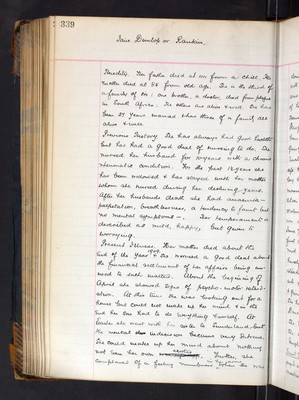 339
Jane Dunlop or Rankin.
Heredity. Her father died at un known a chill. Her
mother died at 86 from old age. She is the third of
a family of six; one brother, a doctor, died from plague
in South Africa; the others are alive & well. She has
been 27 years married & has three of a family all
alive & well.
Previous History. She has always had good health
but has had a good deal of nursing to do. She
nursed her husband for 10 years with a chronic
rheumatic condition. For the past 12 years she
has been widowed & has stayed with her mother
whom she nursed during her declining years.
After her husband's death she had anaemia -
palpitation, breathlessness, a tendency to faint but
no mental symptoms -. Her temperament is
described as mild, happy, but given to
worrying.
Present Illness. Her mother died about the
end of the year 1909. She worried a good deal about
the financial settlement of her affairs being un-
used to such matters. About the beginning of
April she showed signs of psycho-motor retard-
ation. At this time she was looking out for a
house but could not make up her mind & in the
end her son had to do everything himself. At
Easter she went with her sister to Sunderland but
the mental indecision became very intense.
She could make up her mind about nothing
not even her own. Further, she
complained of a feeling numbness when she was